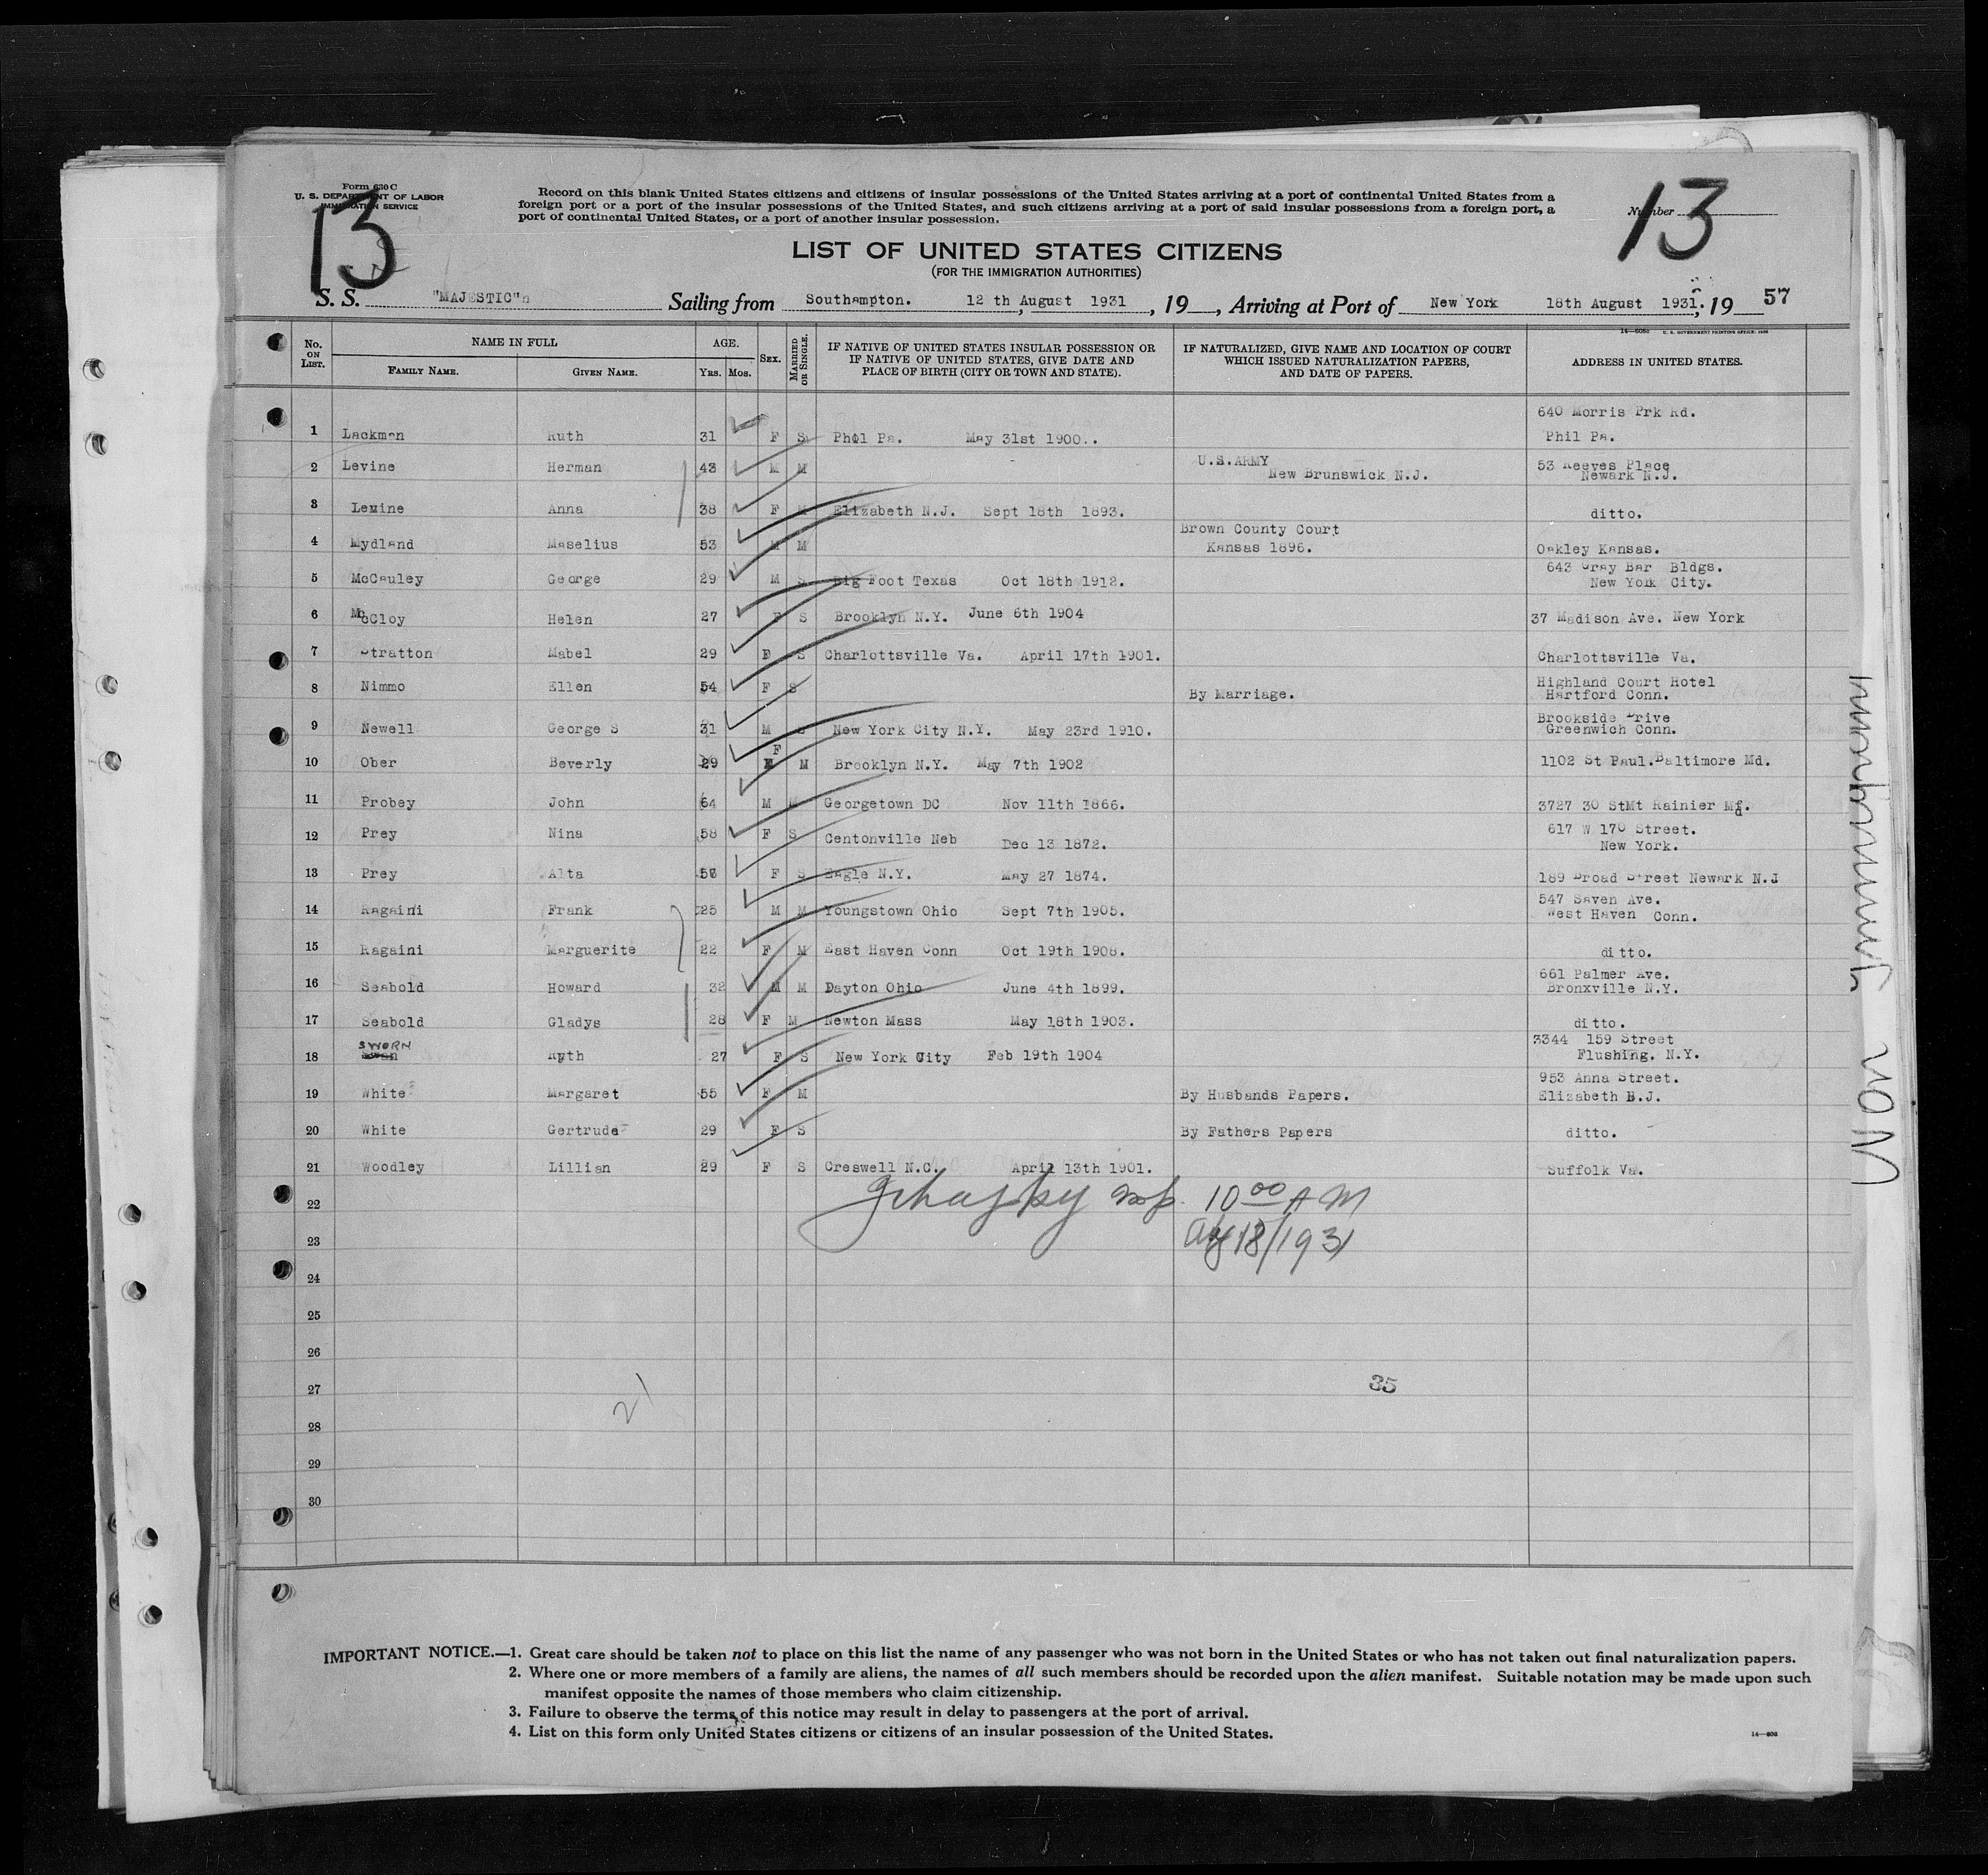 Form 630 C
U. S. DEPARTMENT OF LABOR
IMMIGRATION SERVICE
13
Record on this blank United States citizens and citizens of insular possessions of the United States arriving at a port of continental United States from a
foreign port or a port of the insular possessions of the United States, and such citizens arriving at a port of said insular possessions from a foreign port, a
port of continental United States, or a port of another insular possession.
Number
13
LIST OF UNITED STATES CITIZENS
(FOR THE IMMIGRATION AUTHORITIES)
S. S. "MAJESTIC" Sailing from Southampton. 12 th August 1931, 19 , Arriving at Port of New York 18th August 1931. 19 57
14—608c U. S. GOVERNMENT PRINTING OFFICE: 1930
No. ON LIST. NAME IN FULL AGE. SEX. MARRIED OR SINGLE. IF NATIVE OF UNITED STATES INSULAR POSSESSION OR IF NATIVE OF UNITED STATES, GIVE DATE AND PLACE OF BIRTH (CITY OR TOWN AND STATE). IF NATURALIZED, GIVE NAME AND LOCATION OF COURT WHICH ISSUED NATURALIZATION PAPERS, AND DATE OF PAPERS. ADDRESS IN UNITED STATES.
FAMILY NAME. GIVEN NAME. YRS. MOS.
640 Morris Prk Rd.
1 Lackman Ruth 31 F S Phil Pa. May 31st 1900.. Phil Pa.
2 Levine Herman 43 M M U.S.ARMY New Brunswick N.J. 53 Reeves Place Newark N.J.
3 Levine Anna 38 F M Elizabeth N.J. Sept 18th 1893. ditto.
4 Mydland Maselius 53 M M Brown County Court Kansas 1896. Oakley Kansas.
5 McCauley George 29 M S Big Foot Texas Oct 18th 1912. 643 Gray Bar Bldgs. New York City.
6 McCloy Helen 27 F S Brooklyn N.Y. June 6th 1904 37 Madison Ave. New York
7 Stratton Mabel 29 F S Charlottsville Va. April 17th 1901. Charlottsville Va.
8 Nimmo Ellen 54 F S By Marriage. Highland Court Hotel Hartford Conn.
9 Newell George S 31 M S New York City N.Y. May 23rd 1910. Brookside Drive Greenwich Conn.
10 Ober Beverly 29 F M Brooklyn N.Y. May 7th 1902 1102 St Paul.Baltimore Md.
11 Probey John 64 M M Georgetown DC Nov 11th 1866. 3727 30 StMt Rainier Md.
12 Prey Nina 58 F S Centonville Neb Dec 13 1872. 617 W 170 Street. New York.
13 Prey Alta 57 F S Eagle N.Y. May 27 1874. 189 Broad Street Newark N.J
14 Ragaini Frank 25 M M Youngstown Ohio Sept 7th 1905. 547 Saven Ave. West Haven Conn.
15 Ragaini Marguerite 22 F M East Haven Conn Oct 19th 1908. ditto.
16 Seabold Howard 32 M M Dayton Ohio June 4th 1899. 661 Palmer Ave. Bronxville N.Y.
17 Seabold Gladys 28 F M Newton Mass May 18th 1903. ditto.
18 SWORN Ruth 27 F S New York City Feb 19th 1904 3344 159 Street Flushing, N.Y.
19 White Margaret 55 F M By Husbands Papers. 953 Anna Street. Elizabeth N.J.
20 White Gertrude 29 F S By Fathers Papers ditto.
21 Woodley Lillian 29 F S Creswell N.C. April 13th 1901. Suffolk Va.
22 10 00 AM
23 Aug 18/1931
24
25
26
27 35
21
28
29
30
IMPORTANT NOTICE.—1. Great care should be taken not to place on this list the name of any passenger who was not born in the United States or who has not taken out final naturalization papers.
2. Where one or more members of a family are aliens, the names of all such members should be recorded upon the alien manifest. Suitable notation may be made upon such
manifest opposite the names of those members who claim citizenship.
3. Failure to observe the terms of this notice may result in delay to passengers at the port of arrival.
4. List on this form only United States citizens or citizens of an insular possession of the United States.
14—608